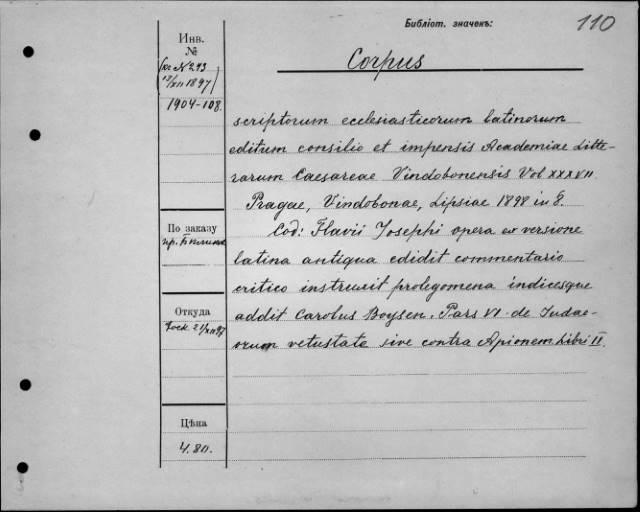 Библіот. значекъ:
110
Инв.
№
(кс N 293
13/XII 1897)
1904-108.
Corpus
scriptorum ecclesiasticorum latinorum
editum consilio et impensis Academiae Litte-
rarum Caesareae Vindobonensis Vol XXXVII
Pragae, Vindobonae, Lipsiae 1898 in 8.
Cod: Flavii Josephi opera ex versione
latina antiqua edidit commentario
critico instruxit prolegomena indicesque
addit Carolus Boysen. Pars VI. de Judae-
orum vetustate sive contra Apionem Libri II.
По заказу
пр.
Откуда
97
Цѣна
4.80.